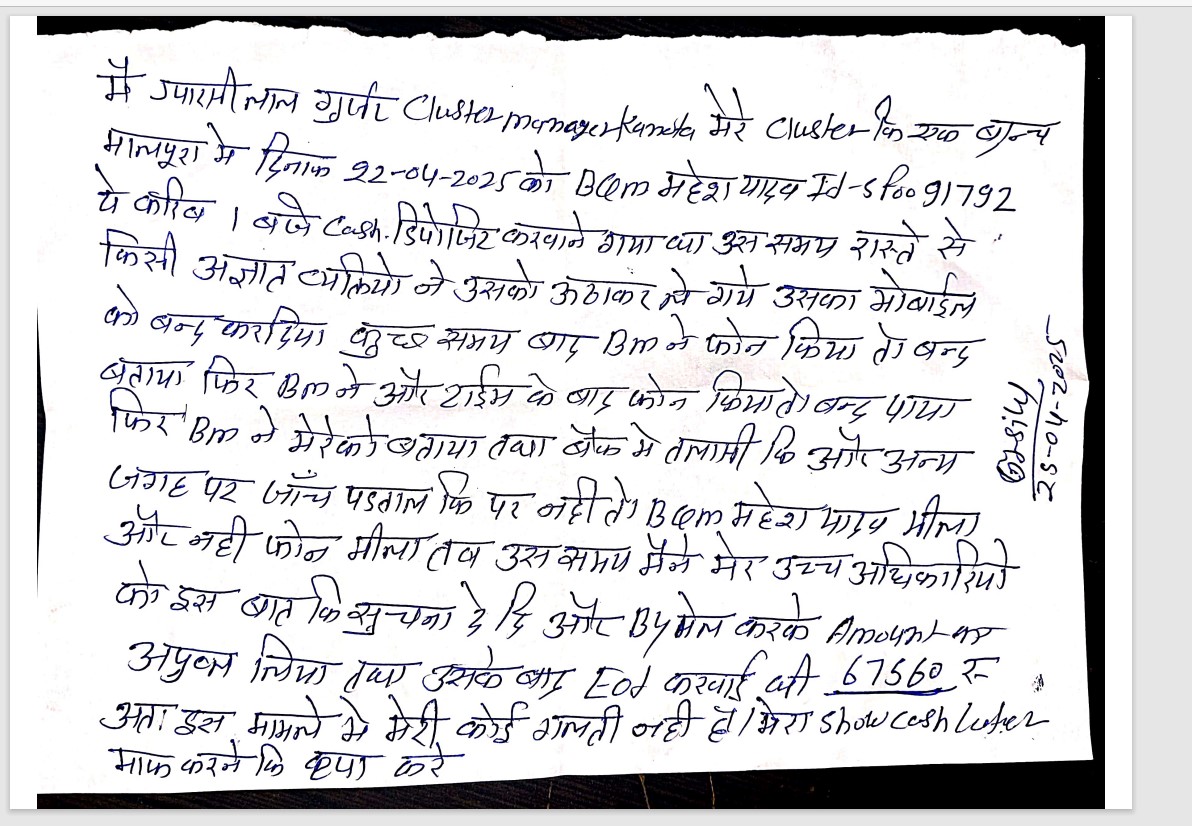 मैं गुर्जर Cluster manager मेरे Cluster कि एक ब्रान्च
मालपूरा मे दिनाक 22-04-2025 को BCM महेश यादव Id-SF0091792
ये करिब 1 बजे Cash. डिपोजिट करवाने गया था उस समय रास्ते से
किसी अज्ञात व्यक्तियो ने उसको ऊठाकर ले गये उसका मोबाईल
को बन्द कर दिया कुच्छ समय बाद Bm ने फोन किया तो बन्द
बताया फिर Bm ने और टाईम के बाद फोन किया तो बन्द पाया
फिर Bm ने मेरेको बताया तथा बैंक मे तलासी कि और अन्य
जगह पर जाँच पडताल कि पर नही तो BCM महेश यादव मीला
और नही फोन मीला तब उस समय मैने मेरे उच्च अधिकारियो
को इस बात कि सुचना दे दि और By मेल करके Amount का
अप्रुवल लिया तथा उसके बाद Eod करवाई थी 67560 रु
अतः इस मामले मे मेरी कोई गलती नही है। मेरा show cash letter
माफ करने कि कृपा करे
25-04-2025